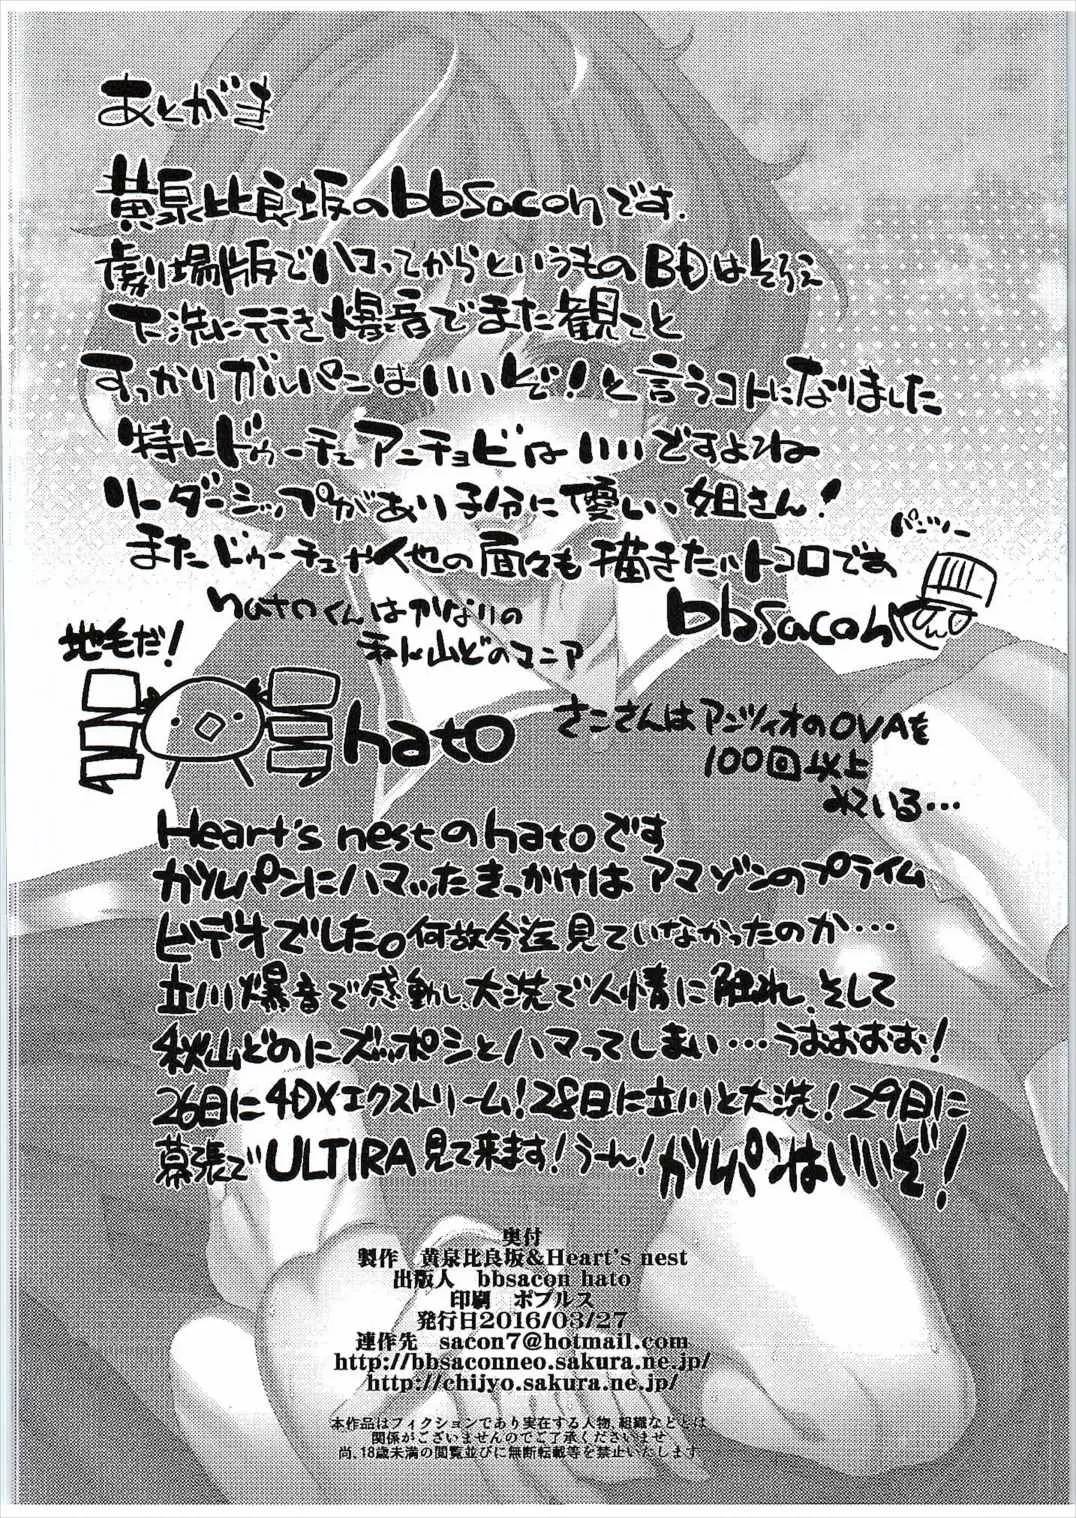 あとがき
黄泉比良坂のbbsaconです.
劇場版でハコってからというものBDはそろえ
大洗に行き爆音でまた観こと
すっかりガルパンはいいぞ!と言うコトになりました
特にドゥーチェアンチョビはいいですよね
リーダーシップがあり子分に優しい、姐さん!
またドゥーチェや他の面々も描きたいトコロです
パンツァー
bbsacon
hatoくんはかなりの
秋山どのマニア
地毛だ!
hato
さこさんはアンツィオのOVAを
100回以上
みている…
Heart's nestのhatoです
ガルパンにハマったきっかけはアマゾンのプライム
ビデオでした。何故今迄見ていなかったのか…
立川爆音で感動し、大洗で人情に触れ、そして
秋山どのにズッポシとハマってしまい…うおおおお!
26日に4DXエクストリーム!28日に立川と大洗!29日に
幕張でULTIRA見て来ます!うーん!ガルパンはいいぞ!
奥付
製作 黄泉比良坂&Heart's nest
出版人 bbsacon hato
印刷 ポプルス
発行日2016/03/27
連作先 sacon7@hotmail.com
http://bbsaconneo.sakura.ne.jp/
http://chijyo.sakura.ne.jp/
本作品はフィクションであり実在する人物、組織などとは
関係がございませんのでご了承くださいませ
尚、18歳未満の閲覧並びに無断転載等を禁止いたします